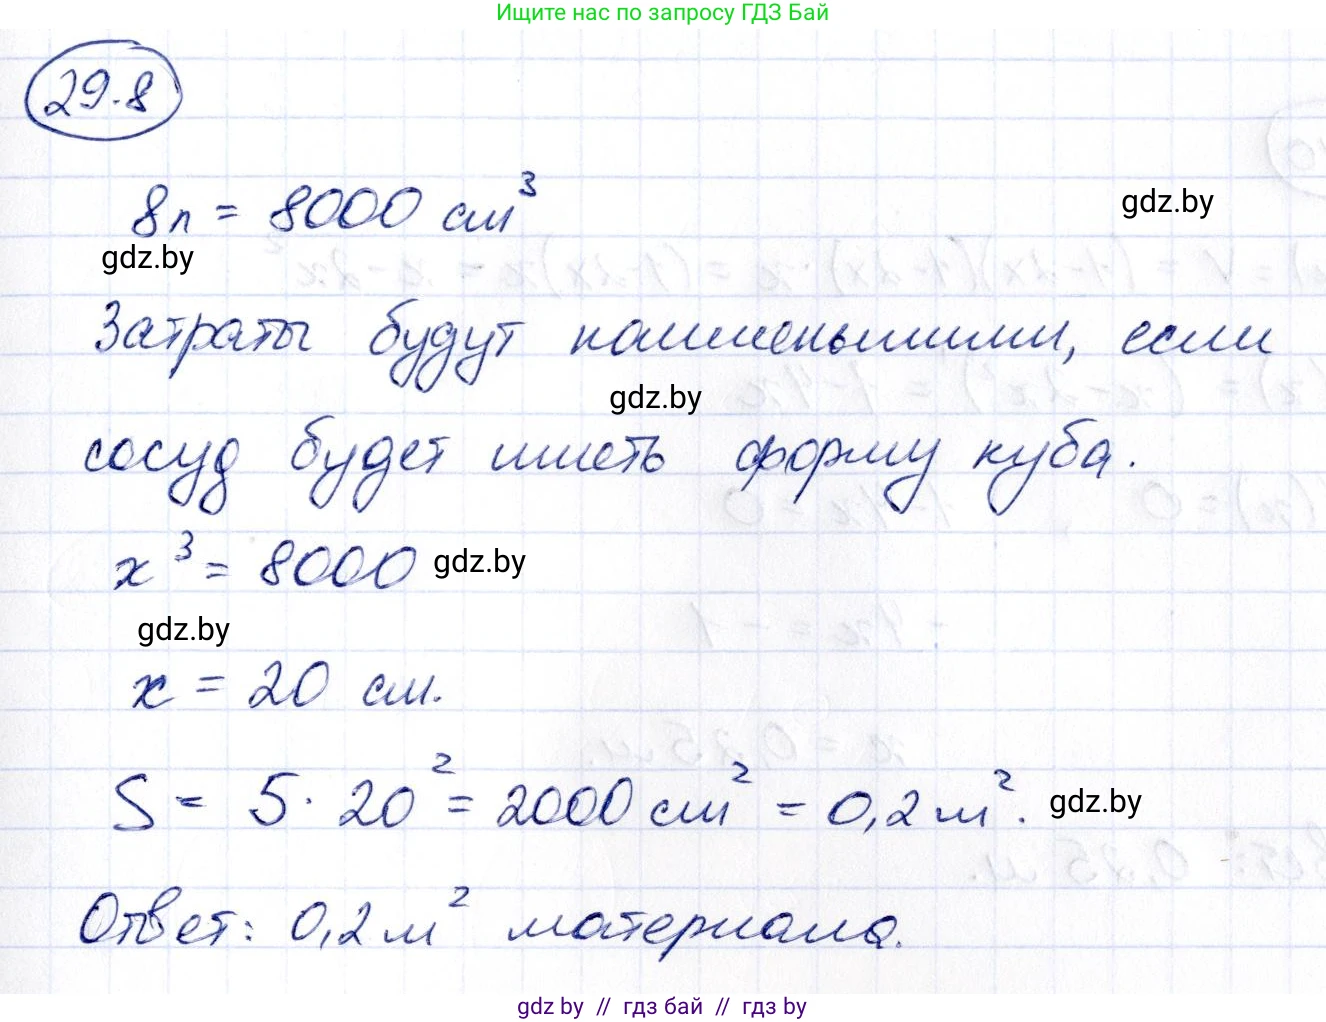 Ищите нас по запросу ГДЗ Бай
29.8
8л = 8000 см³
gdz.by
gdz.by
Затраты будут наименьшими, если
gdz.by
сосуд будет иметь форму куба.
x³ = 8000
gdz.by
gdz.by
x = 20 см.
S = 5 · 20² = 2000 см² = 0,2 м².
gdz.by
Ответ: 0,2 м² материала.
gdz.by // гдз бай // гдз by